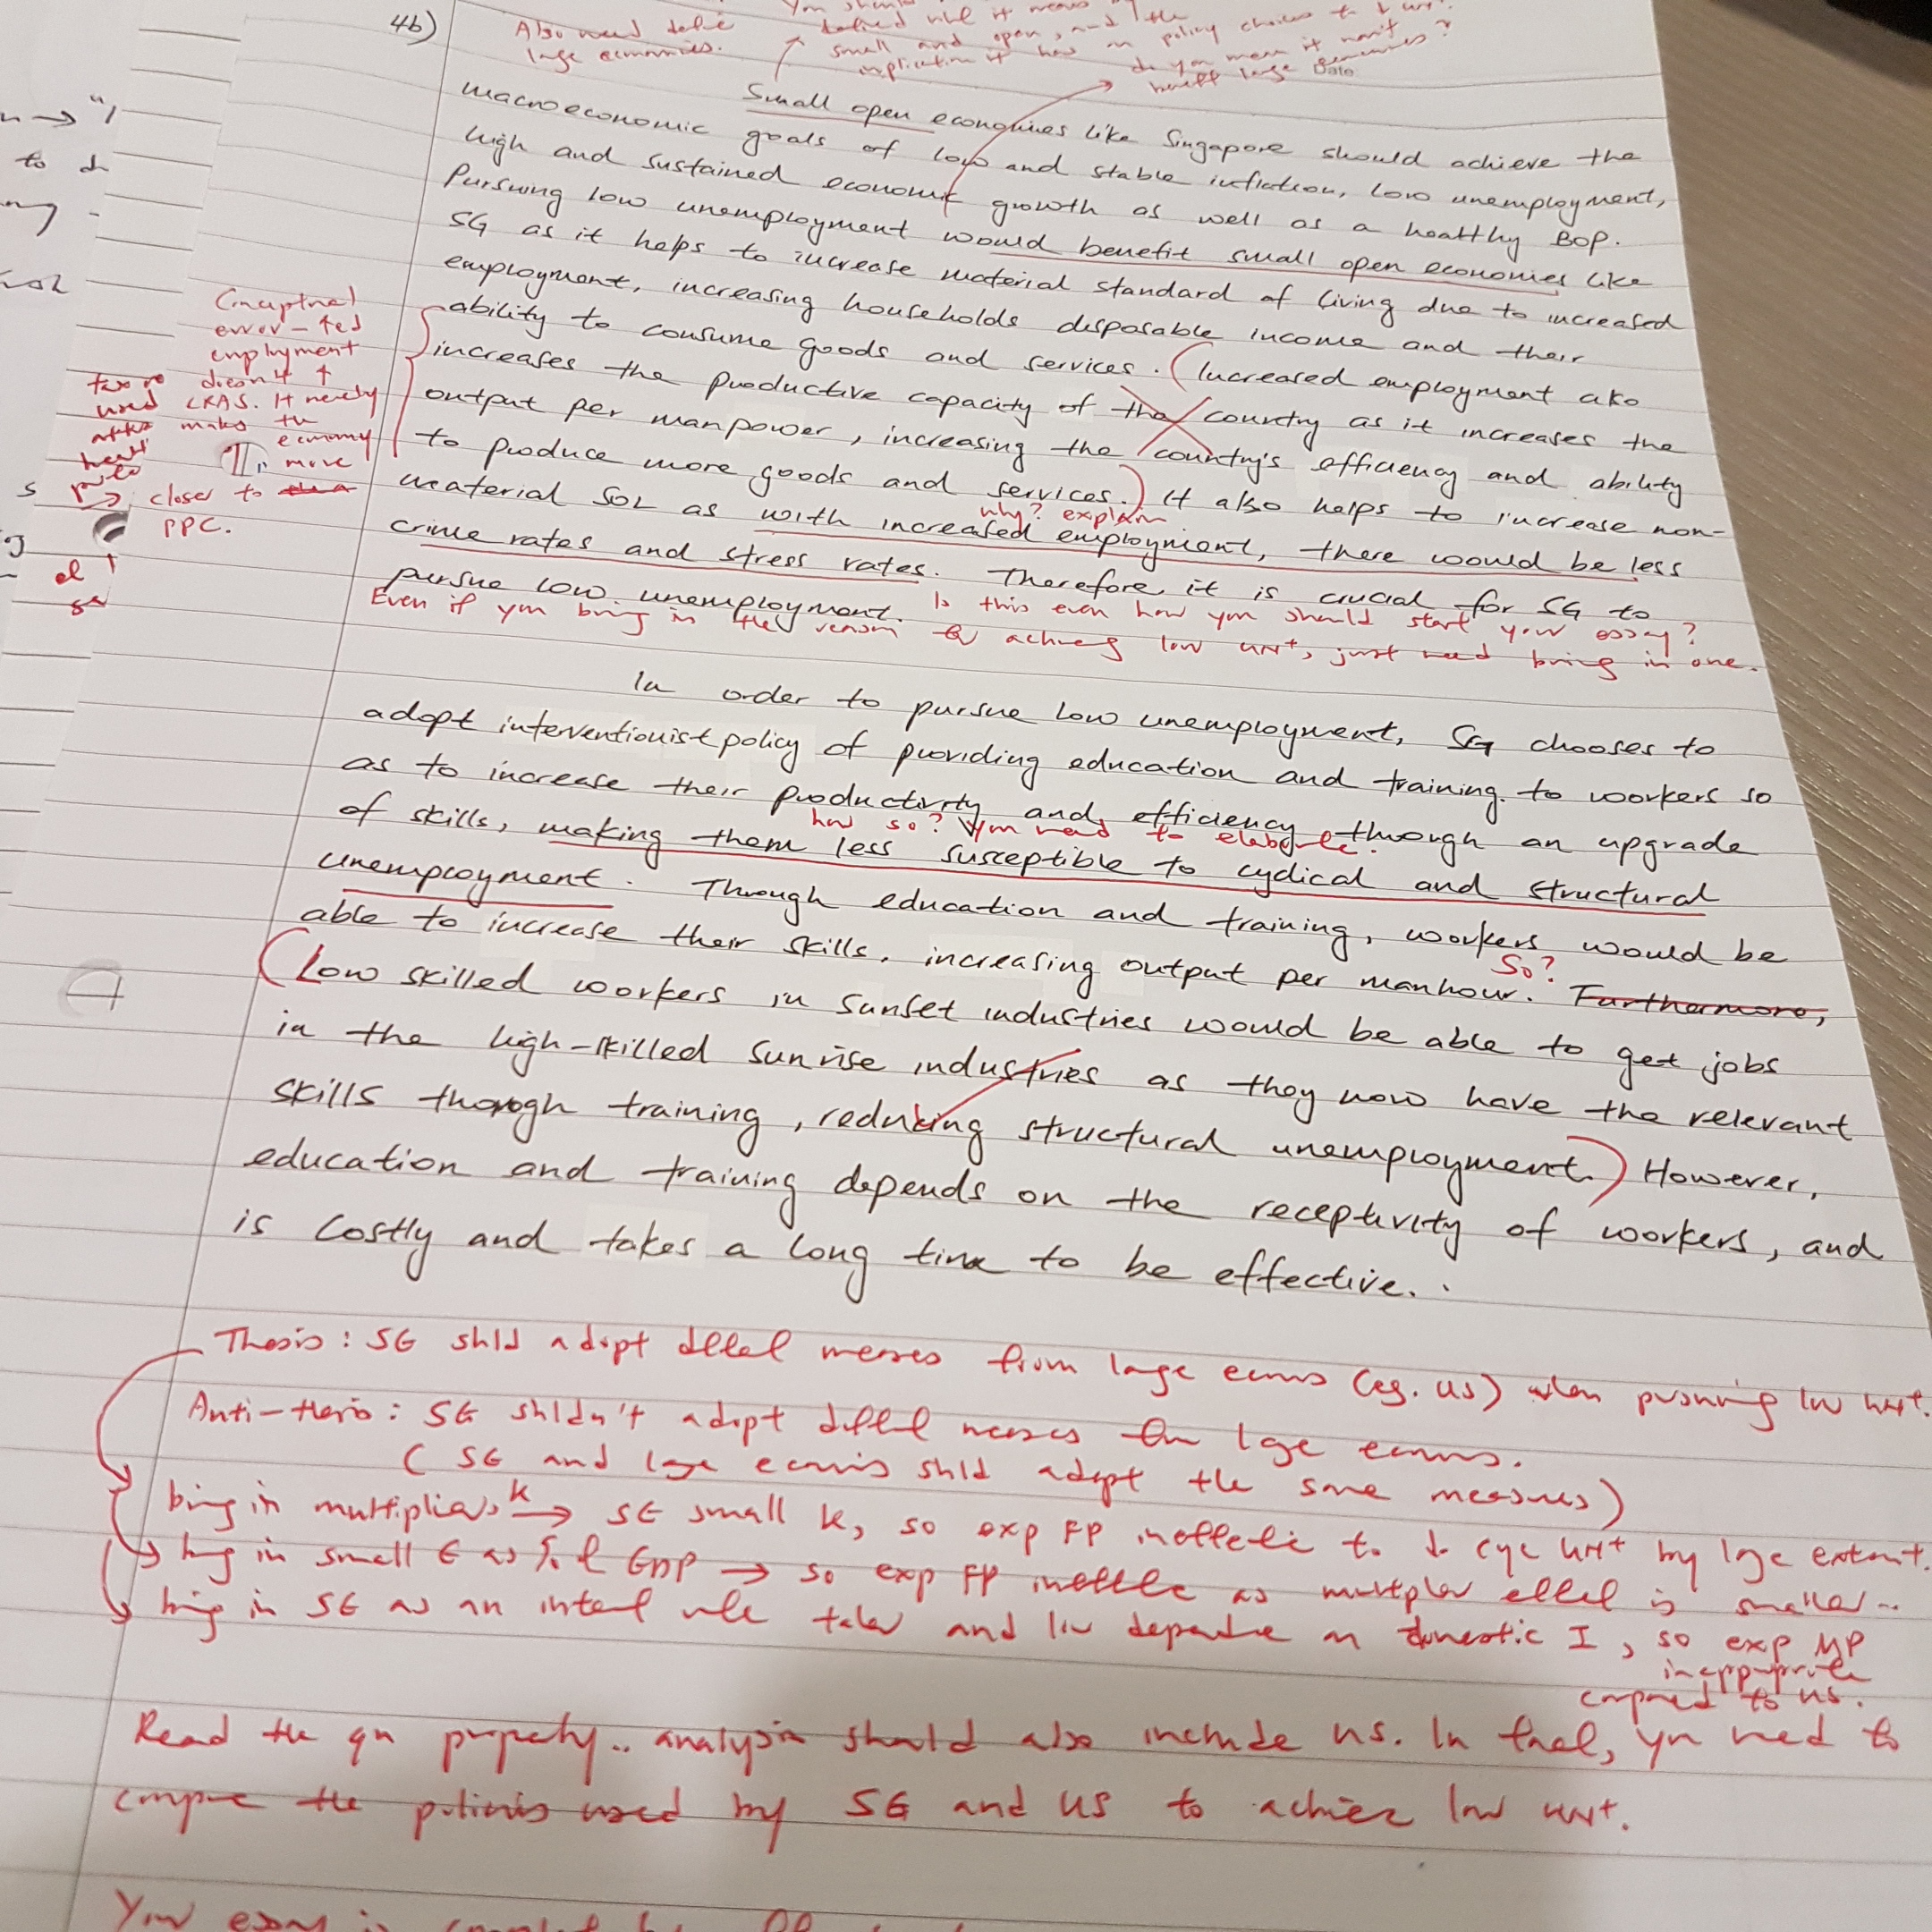 4b)
Also need define
large economies.
small and open, and the
implication it has on policy choices to ↓ unt.
do you mean it won't
benefit large economies?
Date
Small open economies like Singapore should achieve the
macroeconomic goals of low and stable inflation, low unemployment,
high and sustained economic growth as well as a healthy BOP.
Pursuing low unemployment would benefit small open economies like
SG as it helps to increase material standard of living due to increased
employment, increasing households disposable income and their
ability to consume goods and services. (Increased employment also
increases the productive capacity of the country as it increases the
output per manpower, increasing the country's efficiency and ability
to produce more goods and services.) It also helps to increase non-
why? explain
material SOL as with increased employment, there would be less
crime rates and stress rates. Therefore it is crucial for SG to
pursue low unemployment. Is this even how you should start your essay?
Even if you bring in the reason for achieving low unt, just need bring in one.
Conceptual
error - ↑ed
employment
doesn't ↑
LRAS. It merely
makes the
economy
move
closer to
PPC.
In order to pursue low unemployment, SG chooses to
adopt interventionist policy of providing education and training to workers so
as to increase their productivity and efficiency through an upgrade
how so? You need to elaborate.
of skills, making them less susceptible to cyclical and structural
unemployment. Through education and training, workers would be
able to increase their skills, increasing output per manhour. Furthermore,
So?
(Low skilled workers in sunset industries would be able to get jobs
in the high-skilled sunrise industries as they now have the relevant
skills thorogh training, reducing structural unemployment.) However,
education and training depends on the receptivity of workers, and
is costly and takes a long time to be effective.
Thesis: SG shld adopt from large (eg. US) when pursuing low unt.
Anti-thesis: SG shldn't adopt
(SG and lge shld adopt the same measures)
bring in multiplier, k → SG small k, so exp FP ineffective to ↓ cyc unt by lge extent.
bring in small G as % of GDP → so exp FP ineffective as multiplier effect is smaller..
bring in SG as an and low dependence on domestic I, so exp MP
inappropriate
compared to US.
Read the qn properly.. analysis should also include US. In fact, you need to
compare the policies used by SG and US to achieve low unt.